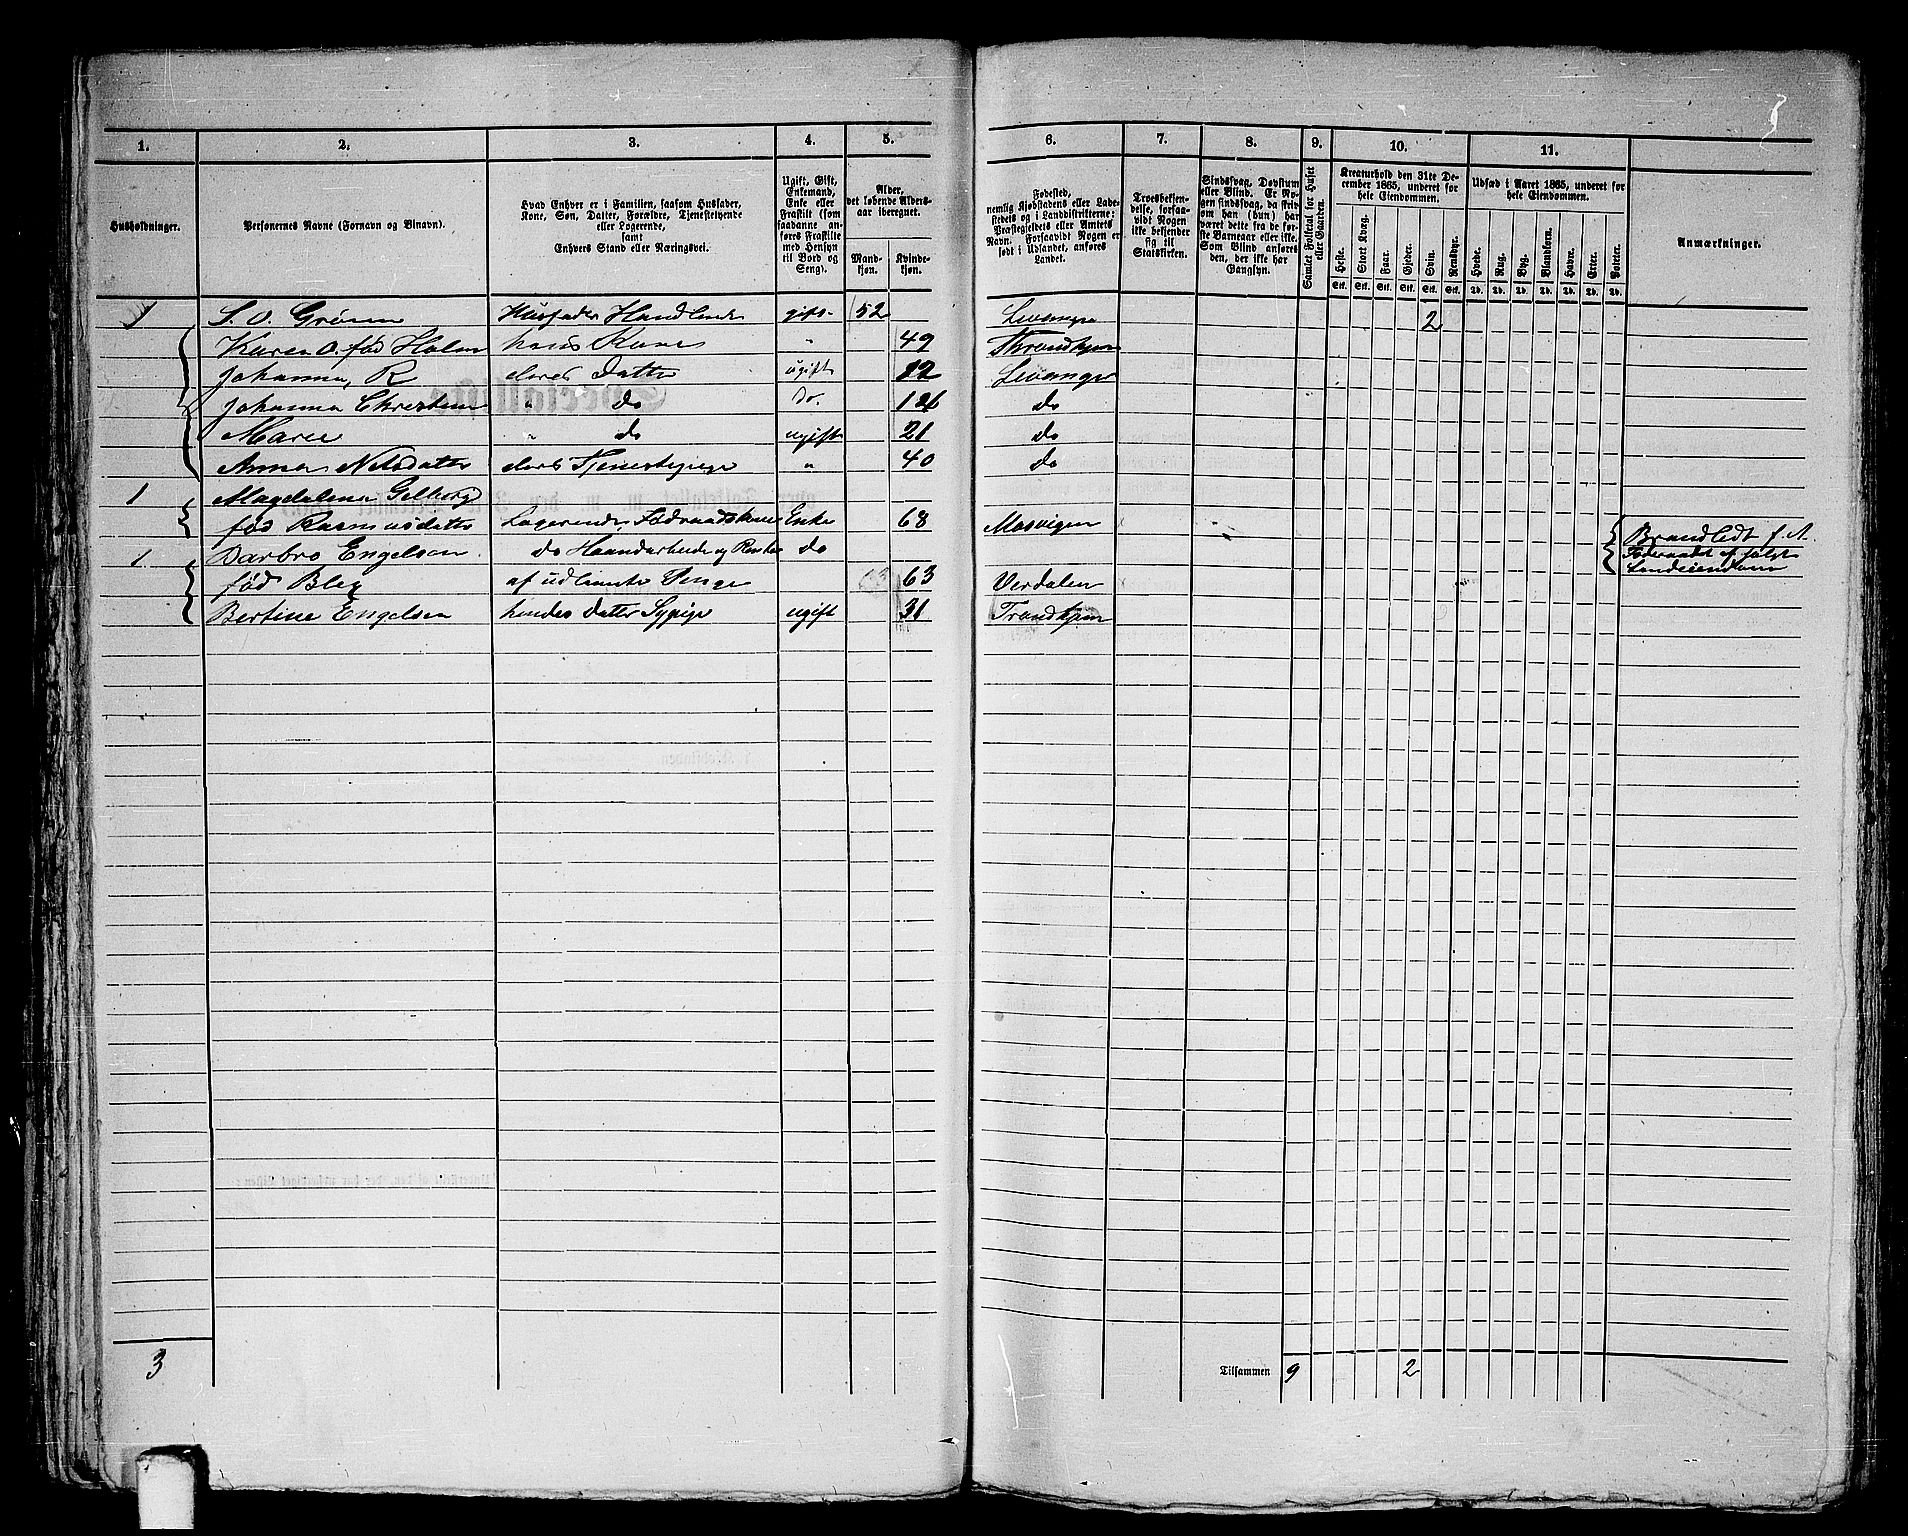 1. 2. 3. 4. 5. 6. 7. 8. 9. 10. 11.
Husholdninger.
Personernes Navne (Fornavn og Binavn).
Hvad Enhver er i Familien, saasom Husfader,
Kone, Søn, Datter, Forældre, Tjenestetyende
eller Logerende,
samt
Enhvers Stand eller Næringsvei.
Ugift, Gift,
Enkemand,
Enke eller
Fraskilt (som
saadanne an-
føres Fraskilte
med Hensyn
til Bord og
Seng).
Alder,
det løbende Alders-
aar iberegnet.
Mand-
kjøn.
Kvinde-
kjøn.
Fødested,
nemlig Kjøbstadens eller Lade-
stedets og i Landdistrikterne:
Præstegjeldets eller Amtets
Navn. Forsaavidt Nogen er
født i Udlandet, anføres
Landet.
Troesbekjen-
delse, forsaa-
vidt Nogen
ikke bekjender
sig til
Statskirken.
Sindssvag, Døvstum
eller Blind. Er No-
gen sindssvag, da skriv
om han (hun) har
været dette fra de før-
ste Barneaar eller ikke.
Som Blind anføres
den, der ikke har
Gangsyn.
Samlet Folketal for Huset
eller Gaarden.
Kreaturhold den 31te De-
cember 1865, underet for
hele Eiendommen.
Heste. Stort Kvæg. Faar. Gjeder. Svin. Rensdyr.
Stk. Stk. Stk. Stk. Stk. Stk.
Udsæd i Aaret 1865, underet for
hele Eiendommen.
Hvede. Rug. Byg. Blandkorn. Havre. Erter. Poteter.
Td. Td. Td. Td. Td. Td. Td.
Anmærkninger.
1 S. O. Grönn Husfader Handlende gift 52 Levanger 2
Karen O. fød Holm hans Kone " 49 Throndhjem
Johanna, R deres Datter ugift 22 Levanger
Johanna Christine " do do. 26 do
Maren " do ugift 21 do
Anna Nilsdatter deres Tjenestepige " 40 do
1 Magdalena Gelberg
fød Rasmusdatter Logerende, Födraadskone Enke 68 Mosvigen
1 Barbro Engelsen do Haandarbeide og Renter do
fød Blex af udlaante Penge 63 Verdalen
Bertine Engelsen hendes datter Sypige ugift 31 Trondhjem
Föderaadet af solgt
Landeiendom
3
Tilsammen 9 2